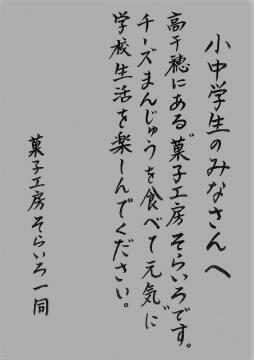 小中学生のみなさんへ
高千穂にある菓子工房そらいろです。
チーズまんじゅうを食べて元気に
学校生活を楽しんでください。
菓子工房そらいろ一同